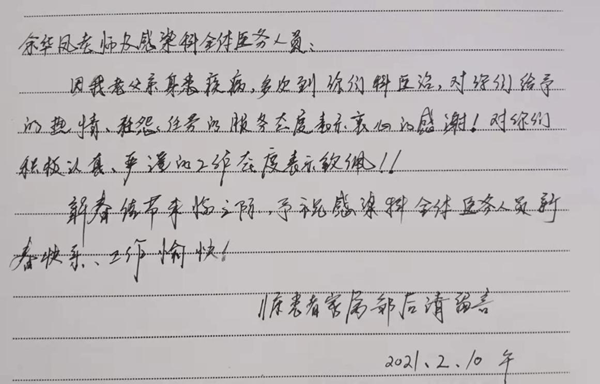 余华凤老师及感染科全体医务人员：
因我老父亲身患疾病，多次到你们科医治，对你们给予
的热情、任劳的服务态度表示衷心的感谢！对你们
积极认真、严谨的工作态度表示钦佩！！
新春佳节来临之际，予祝感染科全体医务人员新
春快乐、工作愉快！
患者家属 后清留言
2021、2、10 午